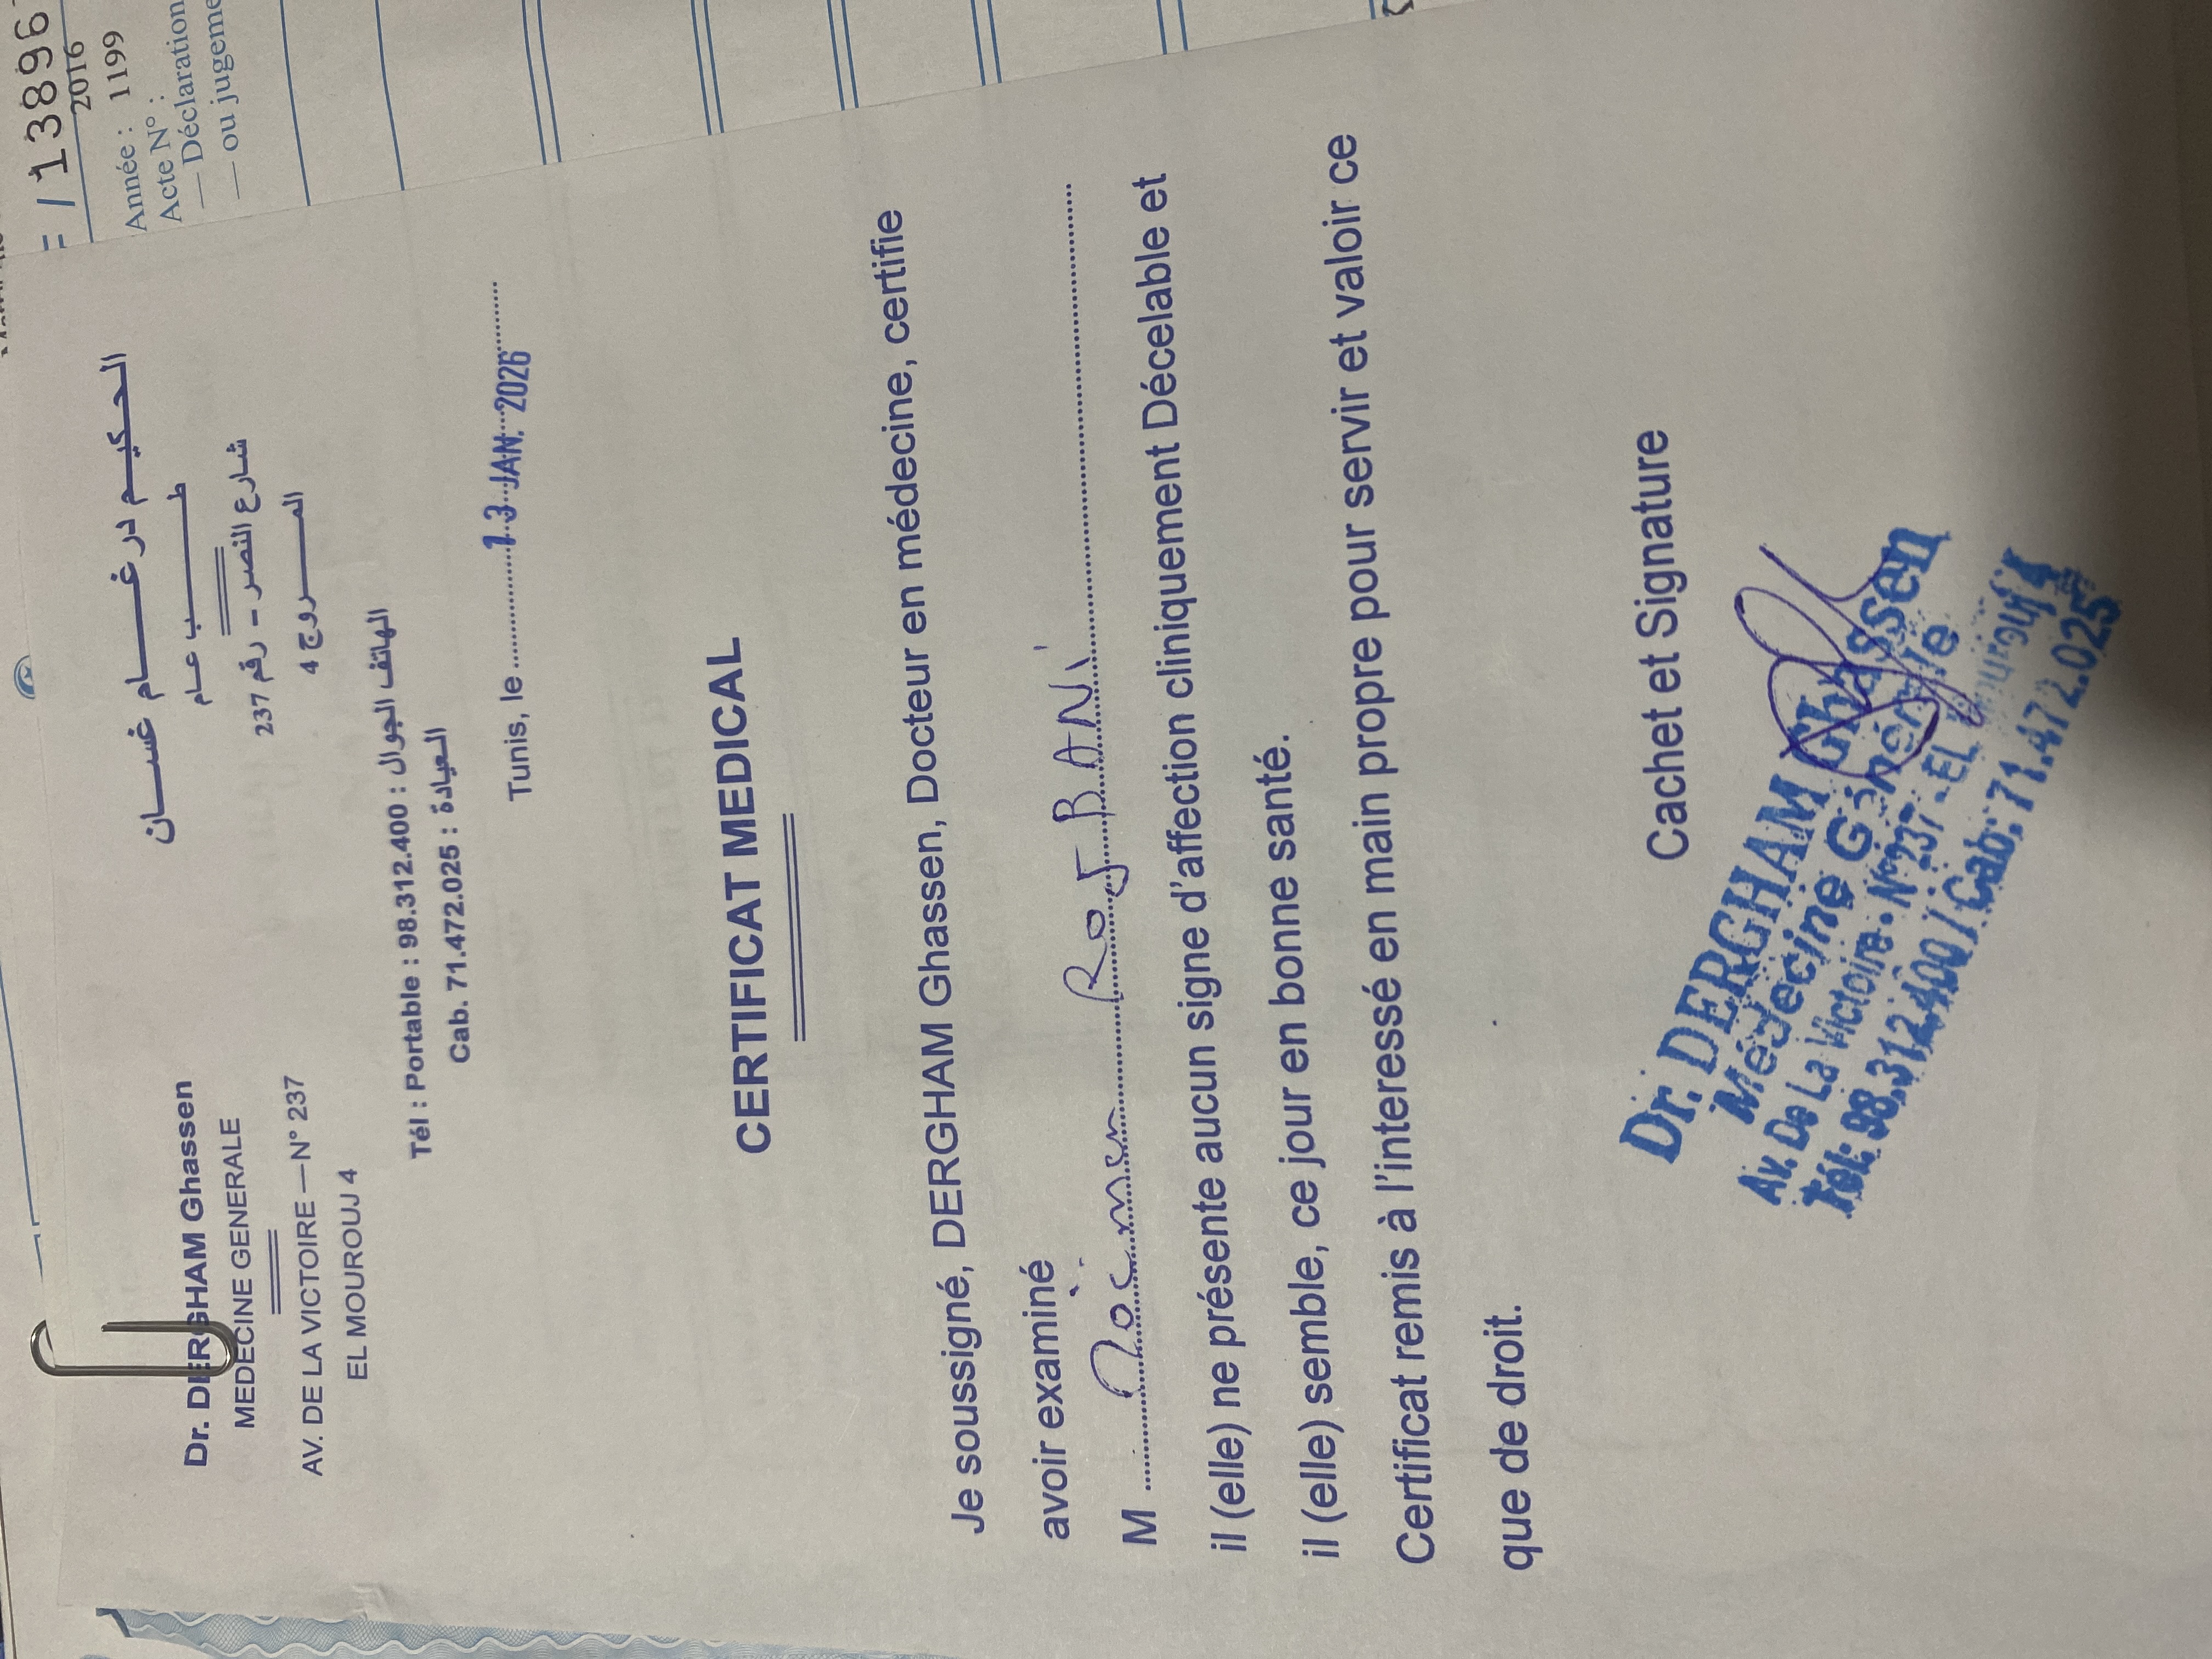 = / 13896
2016
Année : 1199
Acte N° :
— Déclaration
— ou jugeme
Dr. DERGHAM Ghassen
MEDECINE GENERALE
AV. DE LA VICTOIRE —N° 237
EL MOUROUJ 4
الحكيم درغام غسان
طب عام
شارع النصر - رقم 237
المروج 4
Tél : Portable : 98.312.400 : الهاتف الجوال
Cab. 71.472.025 : العيادة
Tunis, le 13 JAN. 2026
CERTIFICAT MEDICAL
Je soussigné, DERGHAM Ghassen, Docteur en médecine, certifie
avoir examiné
M
il (elle) ne présente aucun signe d'affection cliniquement Décelable et
il (elle) semble, ce jour en bonne santé.
Certificat remis à l'interessé en main propre pour servir et valoir ce
que de droit.
Cachet et Signature
Dr. DERGHAM Ghassen
Médecine Générale
Av. De La Victoire - N° 237 - EL Mourouj 4
Tél: 98.312.400 / Cab: 71.472.025